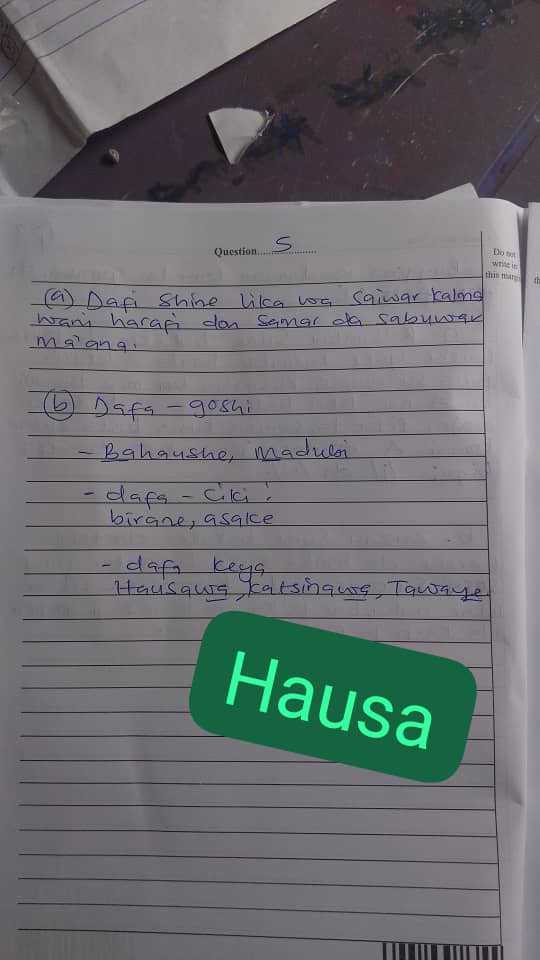 Question.... 5 ....
Do not
write in
this margin
(a) Dafi shine lika wa saiwar kalma
wani harafi don samar da sabuwar
ma'ana.
(b) Dafa - goshi
- Bahaushe, Madubi
- dafa - ciki :
birane, asake
- dafa keya
Hausawa, Katsinawa, Tawaye
Hausa